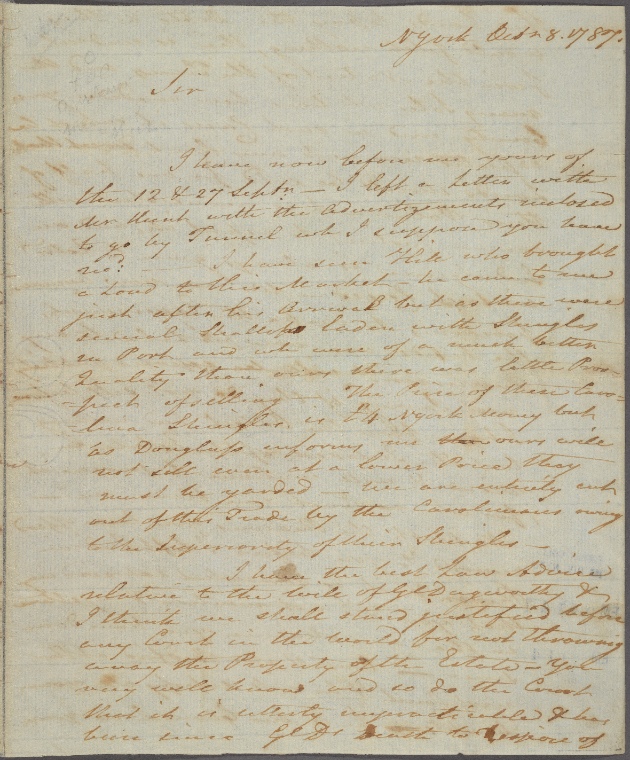 NYork Octr. 8. 1787.
Sir
I have now before me yours of
the 12 & 27 Septr. — I left a Letter with
Mr. with the Advertizements inclosed
to go by Tunnel wh I suppose you have
recd. — I have seen who brought
a Load to this Market — he came to me
just after his Arrival but as there were
several Shallops laden with Shingles
in Port and wh were of a much better
Quality than ours there was little Pros-
-pect of selling — The Price of these Caro-
-lina Shingles is £4 NYork Money but
as Douglass informs me ours will
not sell even at a lower Price they
must be yarded — we are entirely cut
out of this Trade by the Carolinians owing
to the Superiority of their Shingles —
I have the best Law Advice
relative to the Will of Gl Dagworthy &
I think we shall stand justified before
any Court in the world for not throwing
away the Property of the Estate — You
very well know and so do the Court
that it is utterly impracticable & has
been since Gl Ds death to dispose of